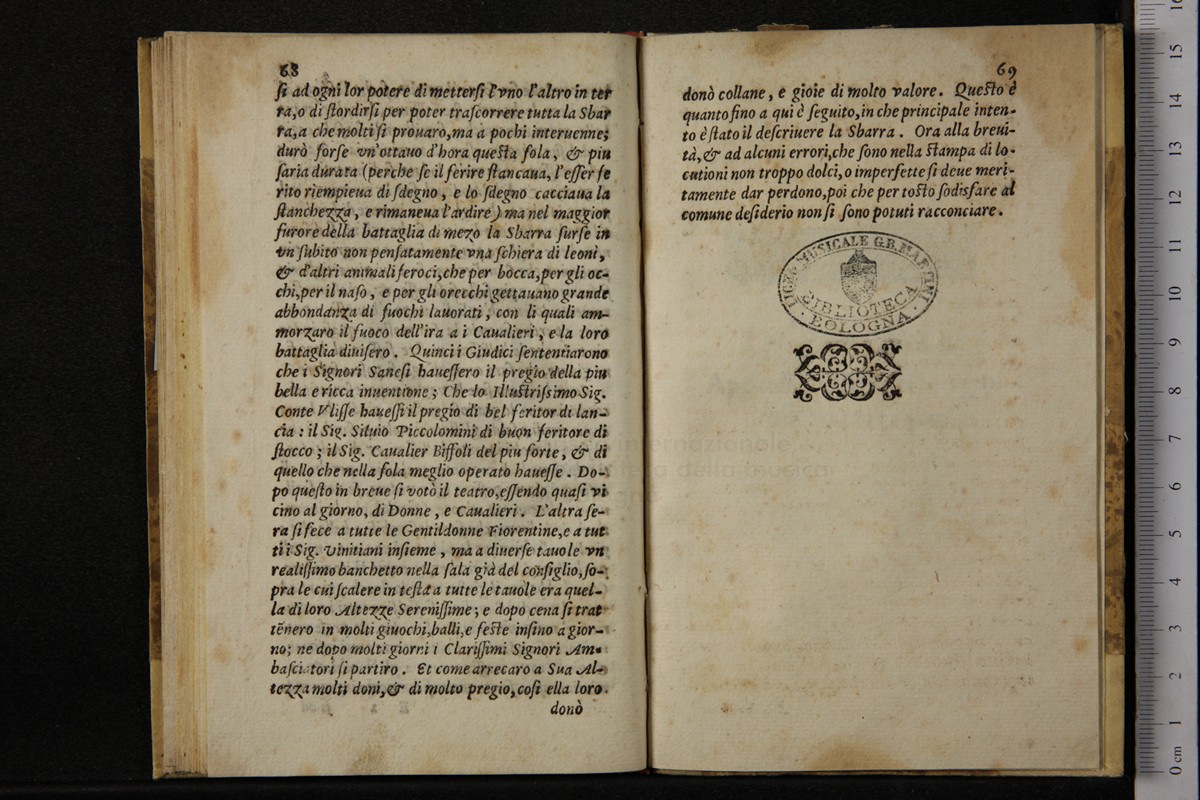 68
ſi ad ogni lor potere di metterſi l'vno l'altro in ter
ra,o di ſtordirſi per poter traſcorrere tutta la Sbar
ra,a che molti ſi prouaro,ma a pochi interuenne;
durò forſe vn'ottauo d'hora queſta fola, & piu
ſaria durata (perche ſe il ferire ſtancaua, l'eſſer fe
rito riempieua di ſdegno, e lo ſdegno cacciaua la
ſtanchezza, e rimaneua l'ardire) ma nel maggior
furore della battaglia di mezo la Sbarra ſurſe in
vn ſubito non penſatamente vna ſchiera di leoni,
& d'altri animali feroci,che per bocca,per gli oc-
chi,per il naſo, e per gli orecchi gettauano grande
abbondanza di fuochi lauorati, con li quali am-
morzaro il fuoco dell'ira a i Caualieri, e la loro
battaglia diuiſero. Quinci i Giudici ſententiarono
che i Signori Saneſi haueſſero il pregio della piu
bella e ricca inuentione; Che lo Illuſtriſsimo Sig.
Conte Vliſſe haueſſi il pregio di bel feritor di lan-
cia : il Sig. Siluio Piccolomini di buon feritore di
ſtocco ; il Sig. Caualier Biffoli del piu forte, & di
quello che nella fola meglio operato haueſſe. Do-
po queſto in breue ſi votò il teatro,eſſendo quaſi vi
cino al giorno, di Donne, e Caualieri. L'altra ſe-
ra ſi fece a tutte le Gentildonne Fiorentine,e a tut
ti i Sig. Vinitiani inſieme, ma a diuerſe tauole vn
realiſſimo banchetto nella ſala già del conſiglio,ſo-
pra le cui ſcalere in teſta a tutte le tauole era quel-
la di loro Altezze Sereniſſime; e dopo cena ſi trat
tēnero in molti giuochi,balli,e feſte inſino a gior-
no; ne dopo molti giorni i Clariſſimi Signori Am-
baſciatori ſi partiro. Et come arrecaro a Sua Al-
tezza molti doni,& di molto pregio,coſi ella loro
donò
69
donò collane, e gioie di molto valore. Queſto è
quanto fino a qui è ſeguito,in che principale inten-
to è ſtato il deſcriuere la Sbarra. Ora alla breui-
tà,& ad alcuni errori,che ſono nella ſtampa di lo-
cutioni non troppo dolci,o imperfette ſi deue meri-
tamente dar perdono,poi che per toſto ſodisfare al
comune deſiderio non ſi ſono potuti racconciare.
LICEO MUSICALE G.B. MARTINI
BIBLIOTECA
· BOLOGNA ·
internazionale
della musica
0 cm 1 2 3 4 5 6 7 8 9 10 11 12 13 14 15 16